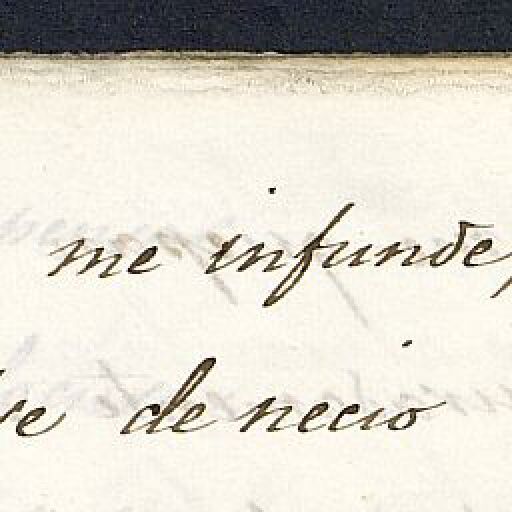 me infunde,
de necio